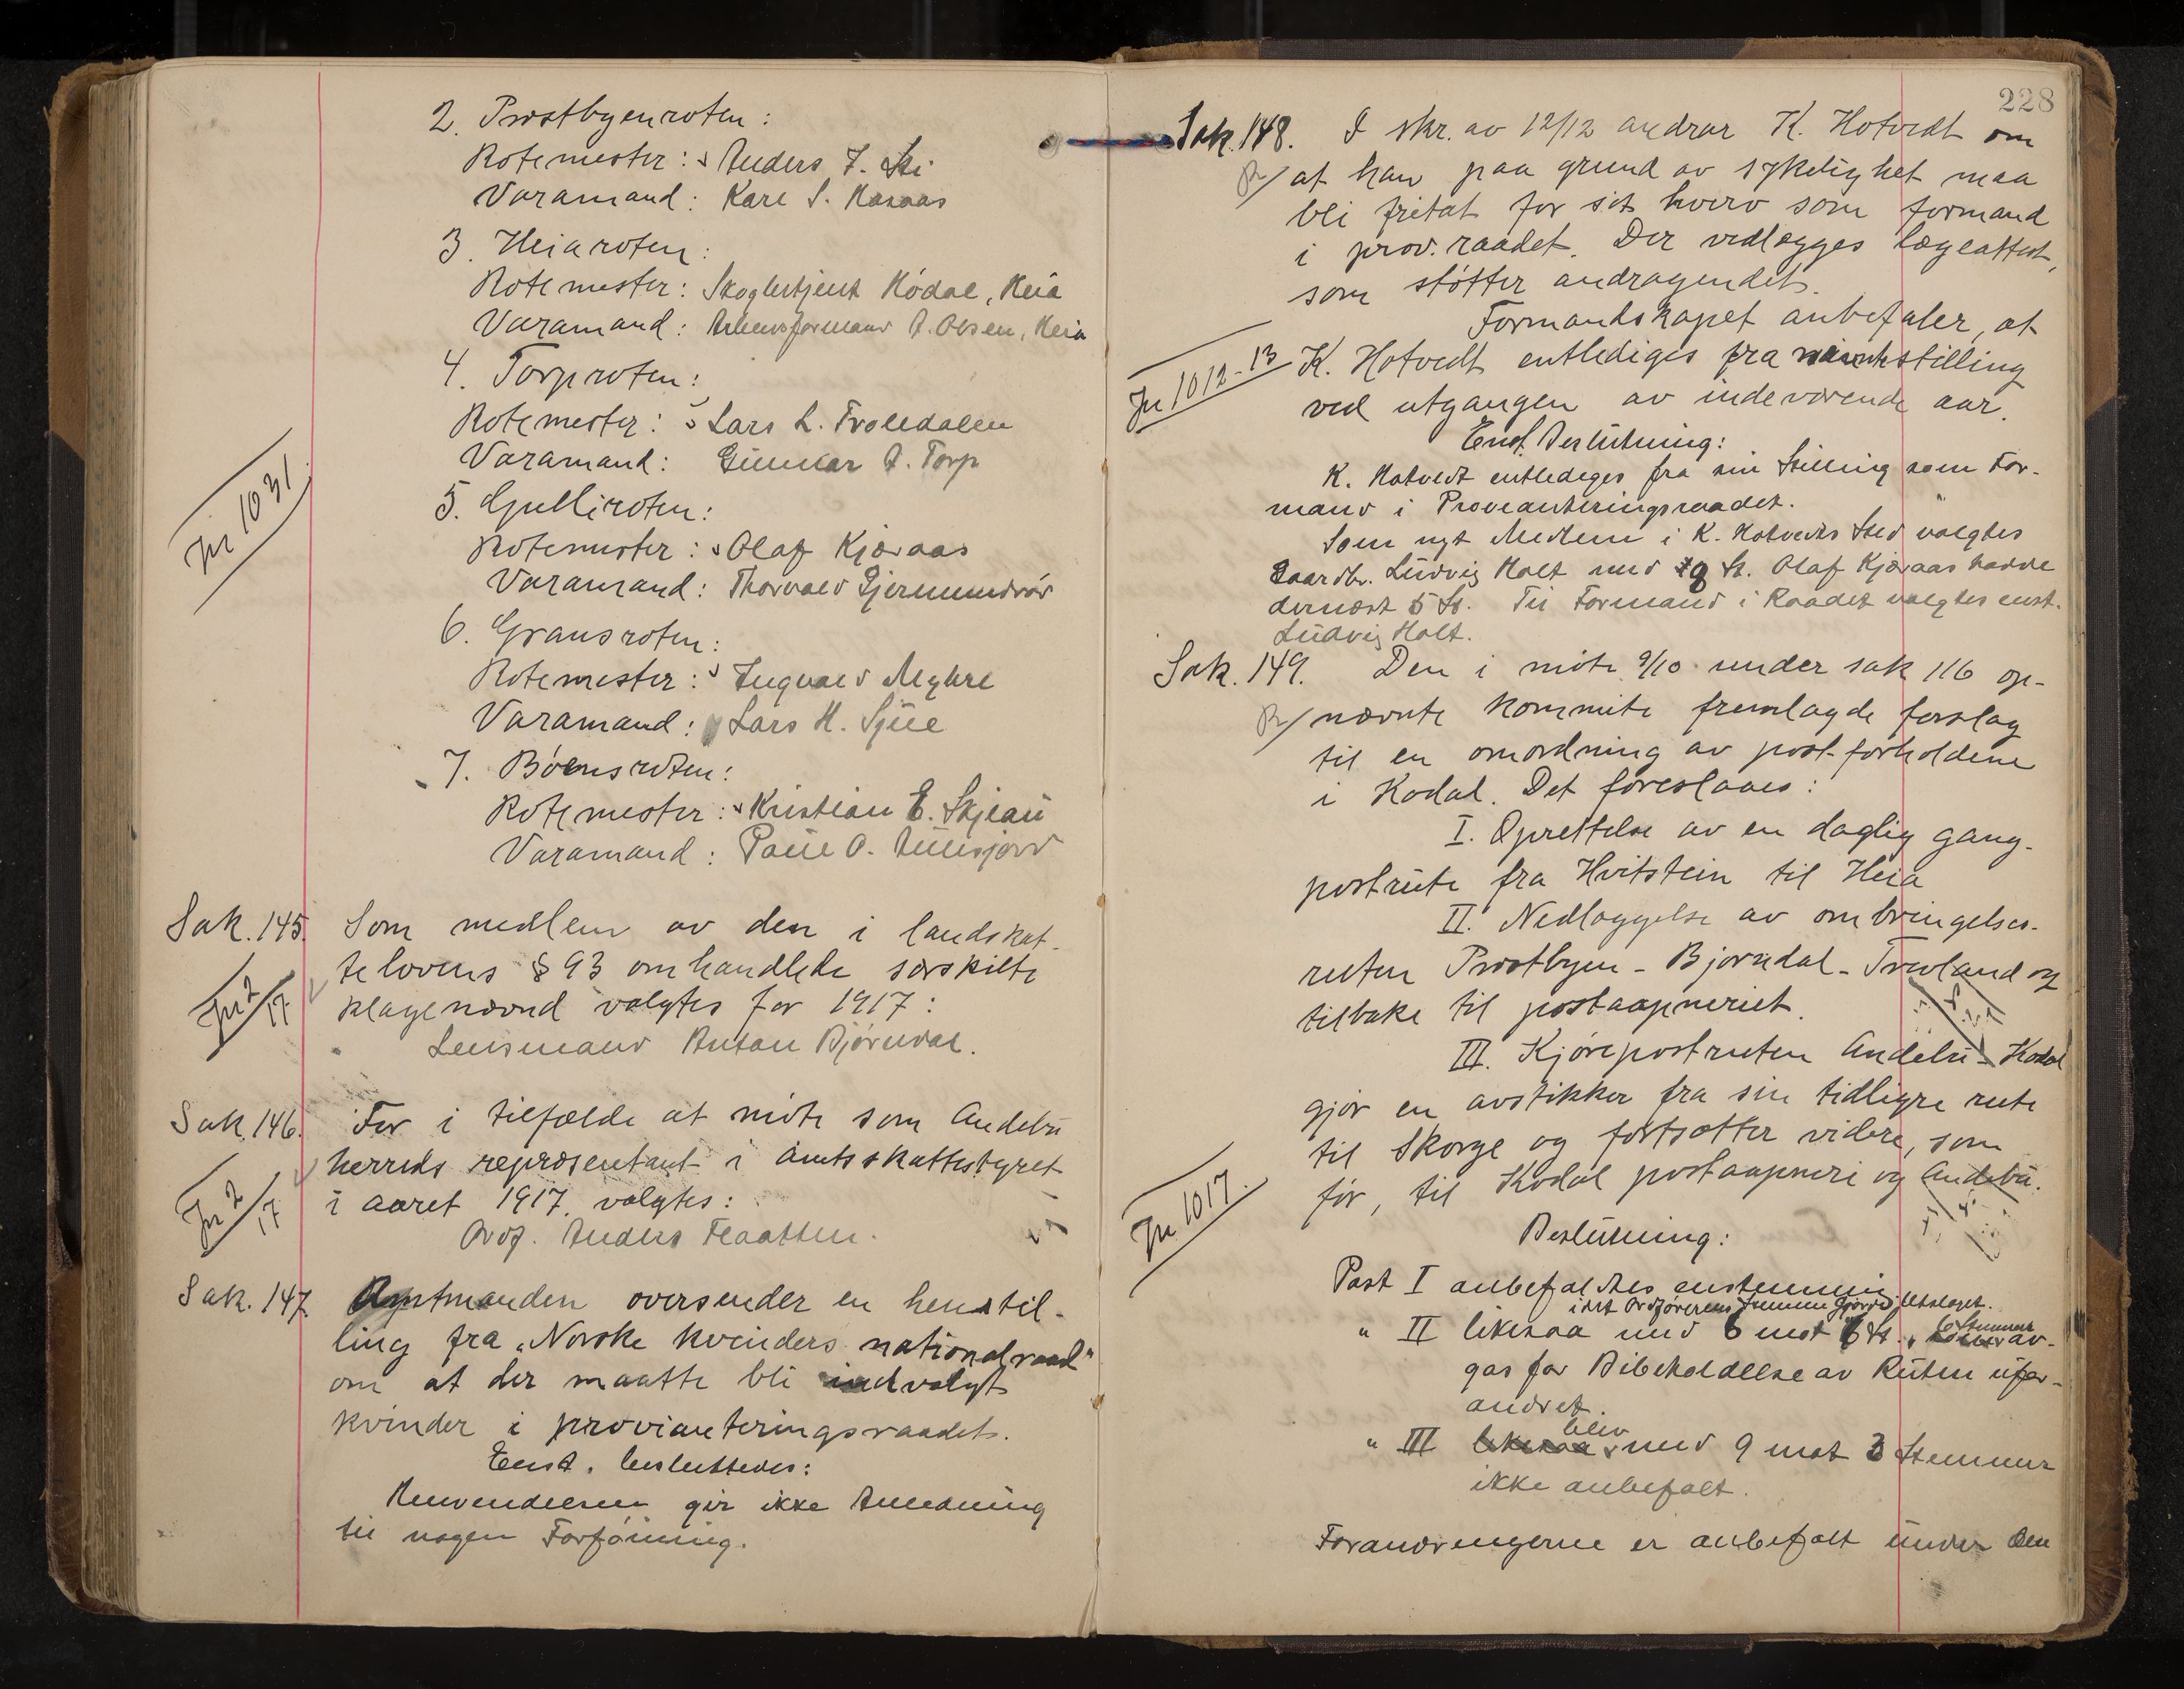 2. Prestbyenroten:
Rotemester: Anders J. Ski
Varamand: Karl S. Kasaas
3. Heiaroten:
Rotemester: Skogbetjent Kódal, Heia
Varamand: Arbeidsformand A. Olsen, Heia
4. Torproten:
Rotemester: Lars L. Trolldalen
Varamand: Gunnar A. Torp
Jn 1031
5. Gulliroten:
Rotemester: Olaf Kjæraas
Varamand: Thorvald Gjermundrød
6. Gransroten:
Rotemester: Ingvald Myhre
Varamand: Lars H. Sjue
7. Bøensroten:
Rotemester: Kristian E. Skjeau
Varamand: Paul O.
Sak. 145. Som medlem av den i landskat-
telovens § 93 omhandlede særskilte
Jn 2/17
klagenævnd valgtes for 1917:
Lensmand Anton Bjørndal.
Sak. 146. For i tilfælde at møte som Andebu
herreds repræsentant i amtsskattestyret
Jn 2/17
i aaret 1917 valgtes:
Ordf. Anders Flaatten.
Sak. 147 Amtmanden oversender en henstil-
ling fra "Norske kvinders nationalraad"
om at der maatte bli indvalgt
kvinder i provianteringsraadet.
Enst. besluttedes:
Henvendelsen gir ikke Anledning
til nogen Forføining.
228
Sak. 148. I skr. av 12/12 andrar K. Hotvedt om
at han paa grund av sykelighet maa
bli fritat for sit hverv som formand
i prov.raadet. Der vedlægges lægeattest,
som støtter andragendet.
Formandskapet anbefaler, at
Jn 1012-13
K. Hotvedt entlediges fra nævnte stilling
ved utgangen av indeværende aar.
Enst. Beslutning:
K. Hotvedt entlediges fra sin Stilling som For-
mand i Provianteringsraadet.
Som nyt Medlem i K. Hotvedts Sted valgtes
Gaardbr. Ludvig Holt med 9 St. Olaf Kjæraas hadde
dernæst 5 St. Til Formand i Raadet valgtes enst.
Ludvig Holt.
Sak. 149. Den i møte 9/10 under sak 116 op-
nævnte kommite fremlagde forslag
til en omordning av post-forholdene
i Kodal. Det foreslaaes:
I. Oprettelse av en daglig gang-
postrute fra Hvitstein til Heia
II. Nedlæggelse av ombringelses-
ruten Prestbyen - Bjørndal - Trevland og
tilbake til postaapneriet.
III. Kjørepostruten Andebu - Kodal
gjør en avstikker fra sin tidligere rute
til Skorge og fortsætter videre, som
før, til Kodal postaapneri og Andebu.
Jn 1017.
Beslutning:
Post I anbefaltes enstemmig.
idet Ordførerens Stemme gjorde Utslaget.
" II likesaa med 6 mot 6 St., 6 Stemmer av-
gas for Bibeholdelse av Ruten ufor-
andret.
" III likesaa blev med 9 mot 3 Stemmer
ikke anbefalt.
Forandringerne er anbefalt under den